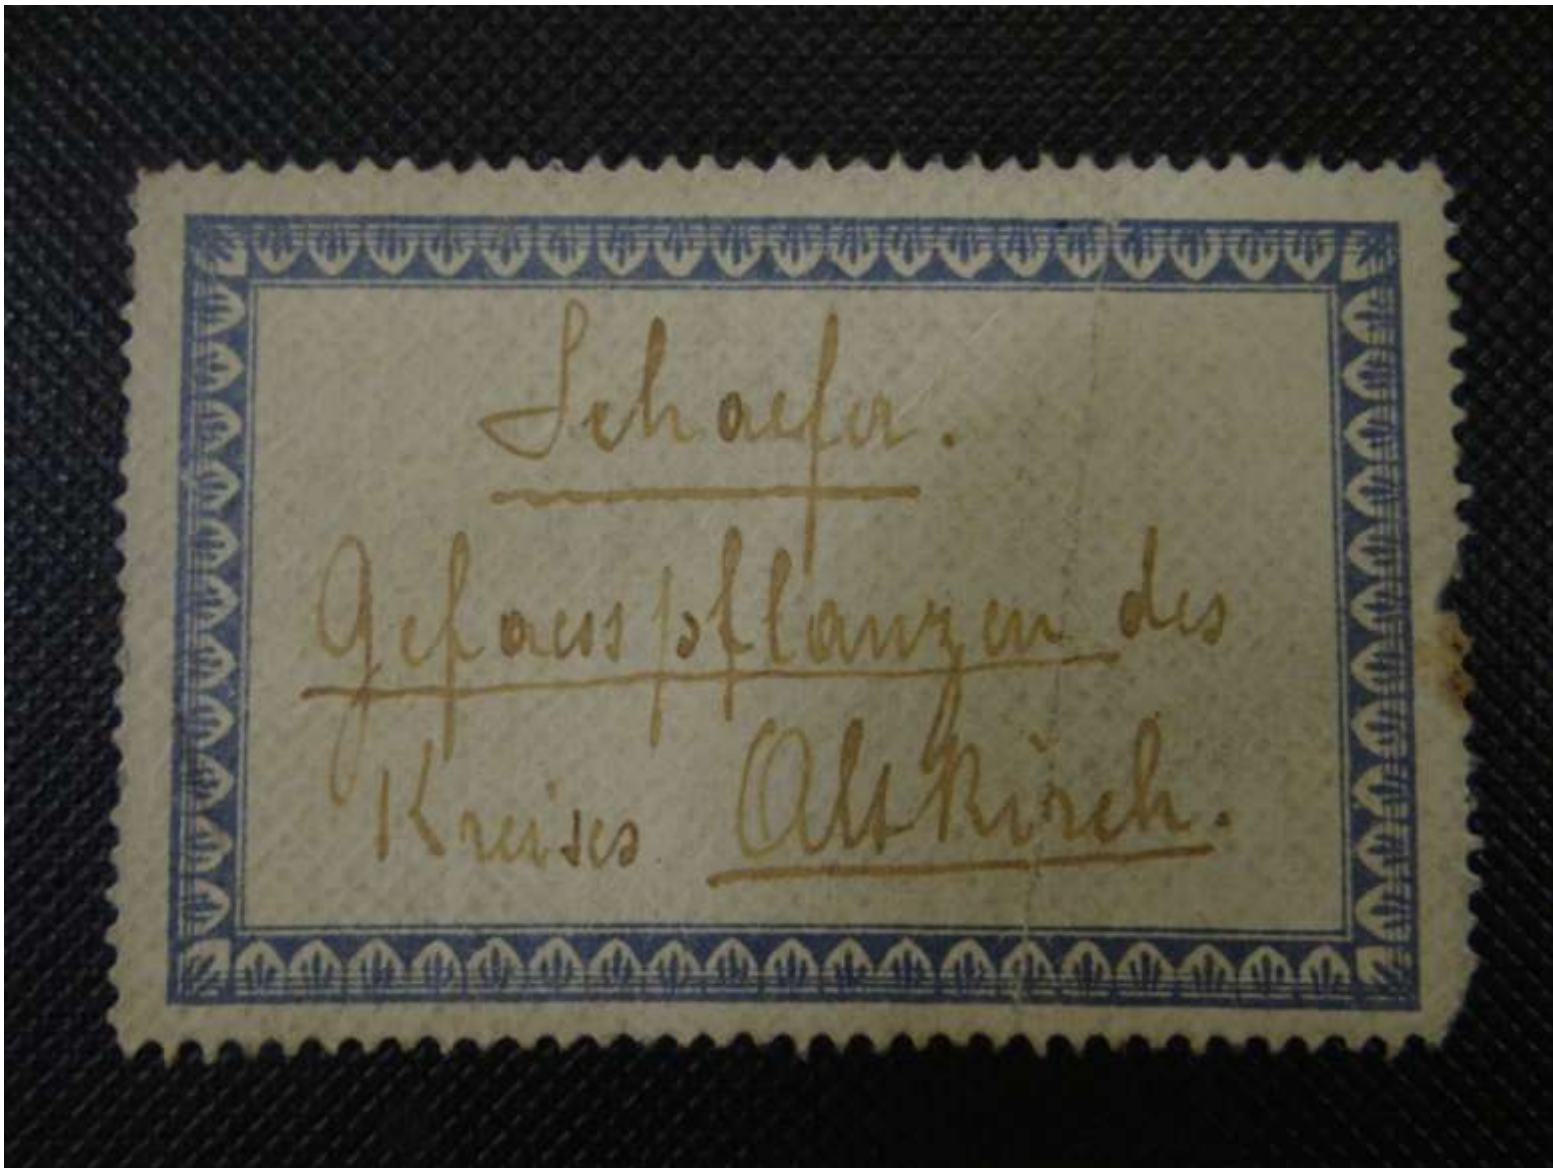 Schaefer.
Gefaesspflanzen des
Kreises Altkirch.